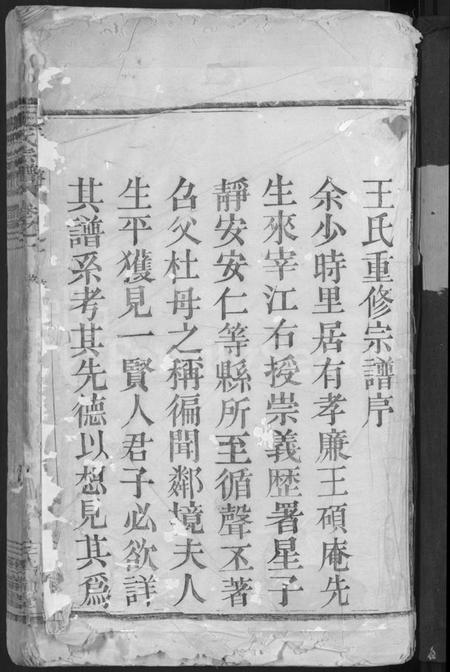 王氏重修宗譜序
余少時里居有孝廉王碩庵先
生來宰江右授崇義歷署星子
靜安安仁等縣所至循聲丕著
召父杜母之稱徧聞鄰境夫人
生平獲見一賢人君子必欲詳
其譜系考其先德以想見其為